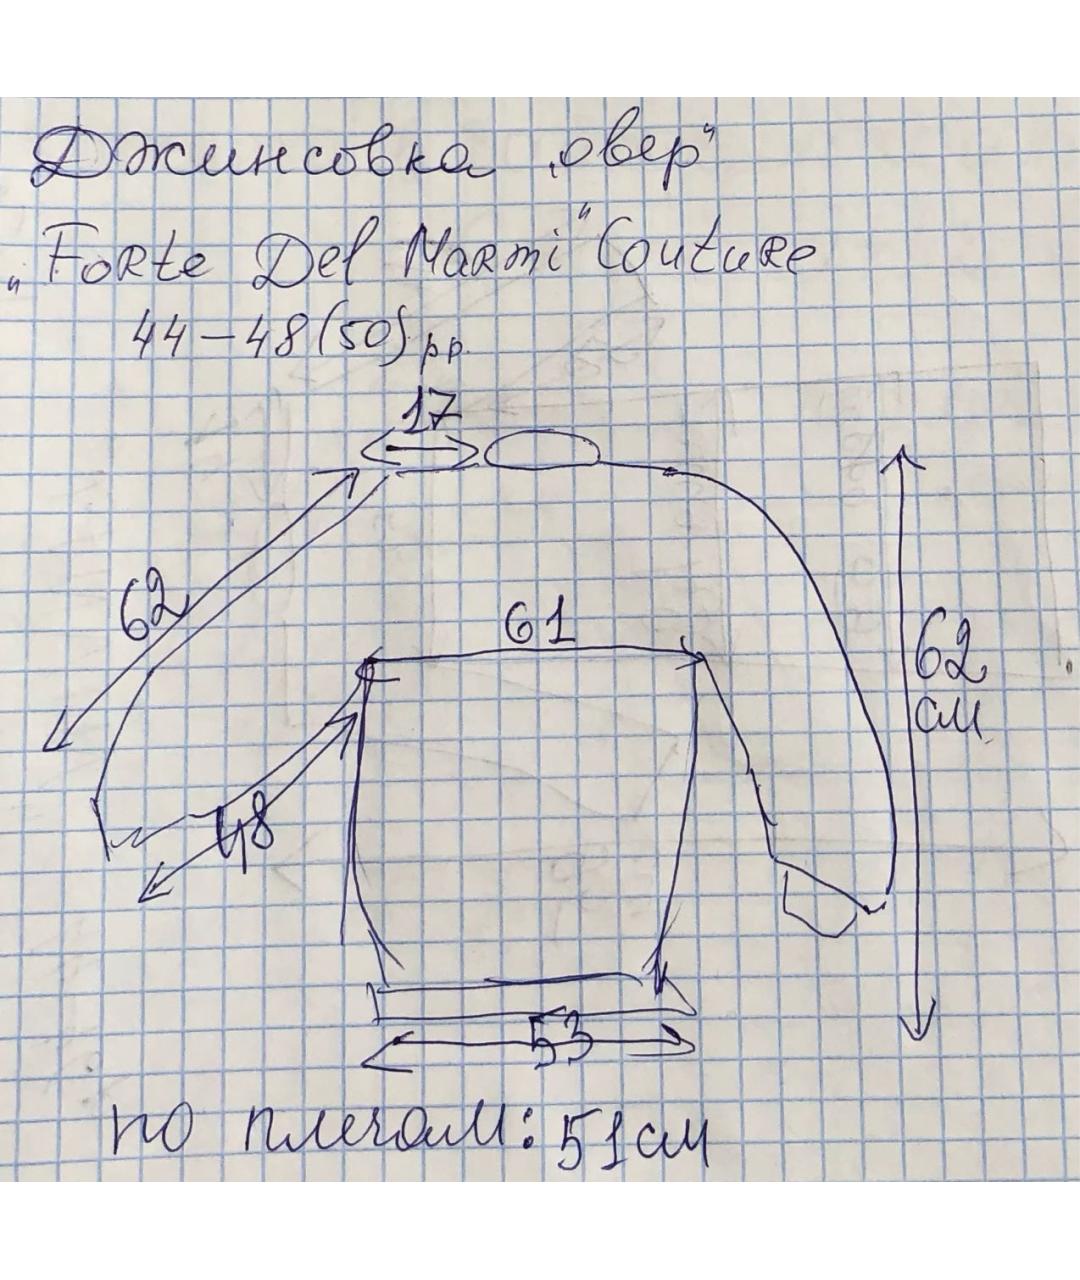 Джинсовка „овер"
„Forte Del Marmi" Couture
44-48(50)рр.
17
62
61
62
см
48
53
по плечам: 51см